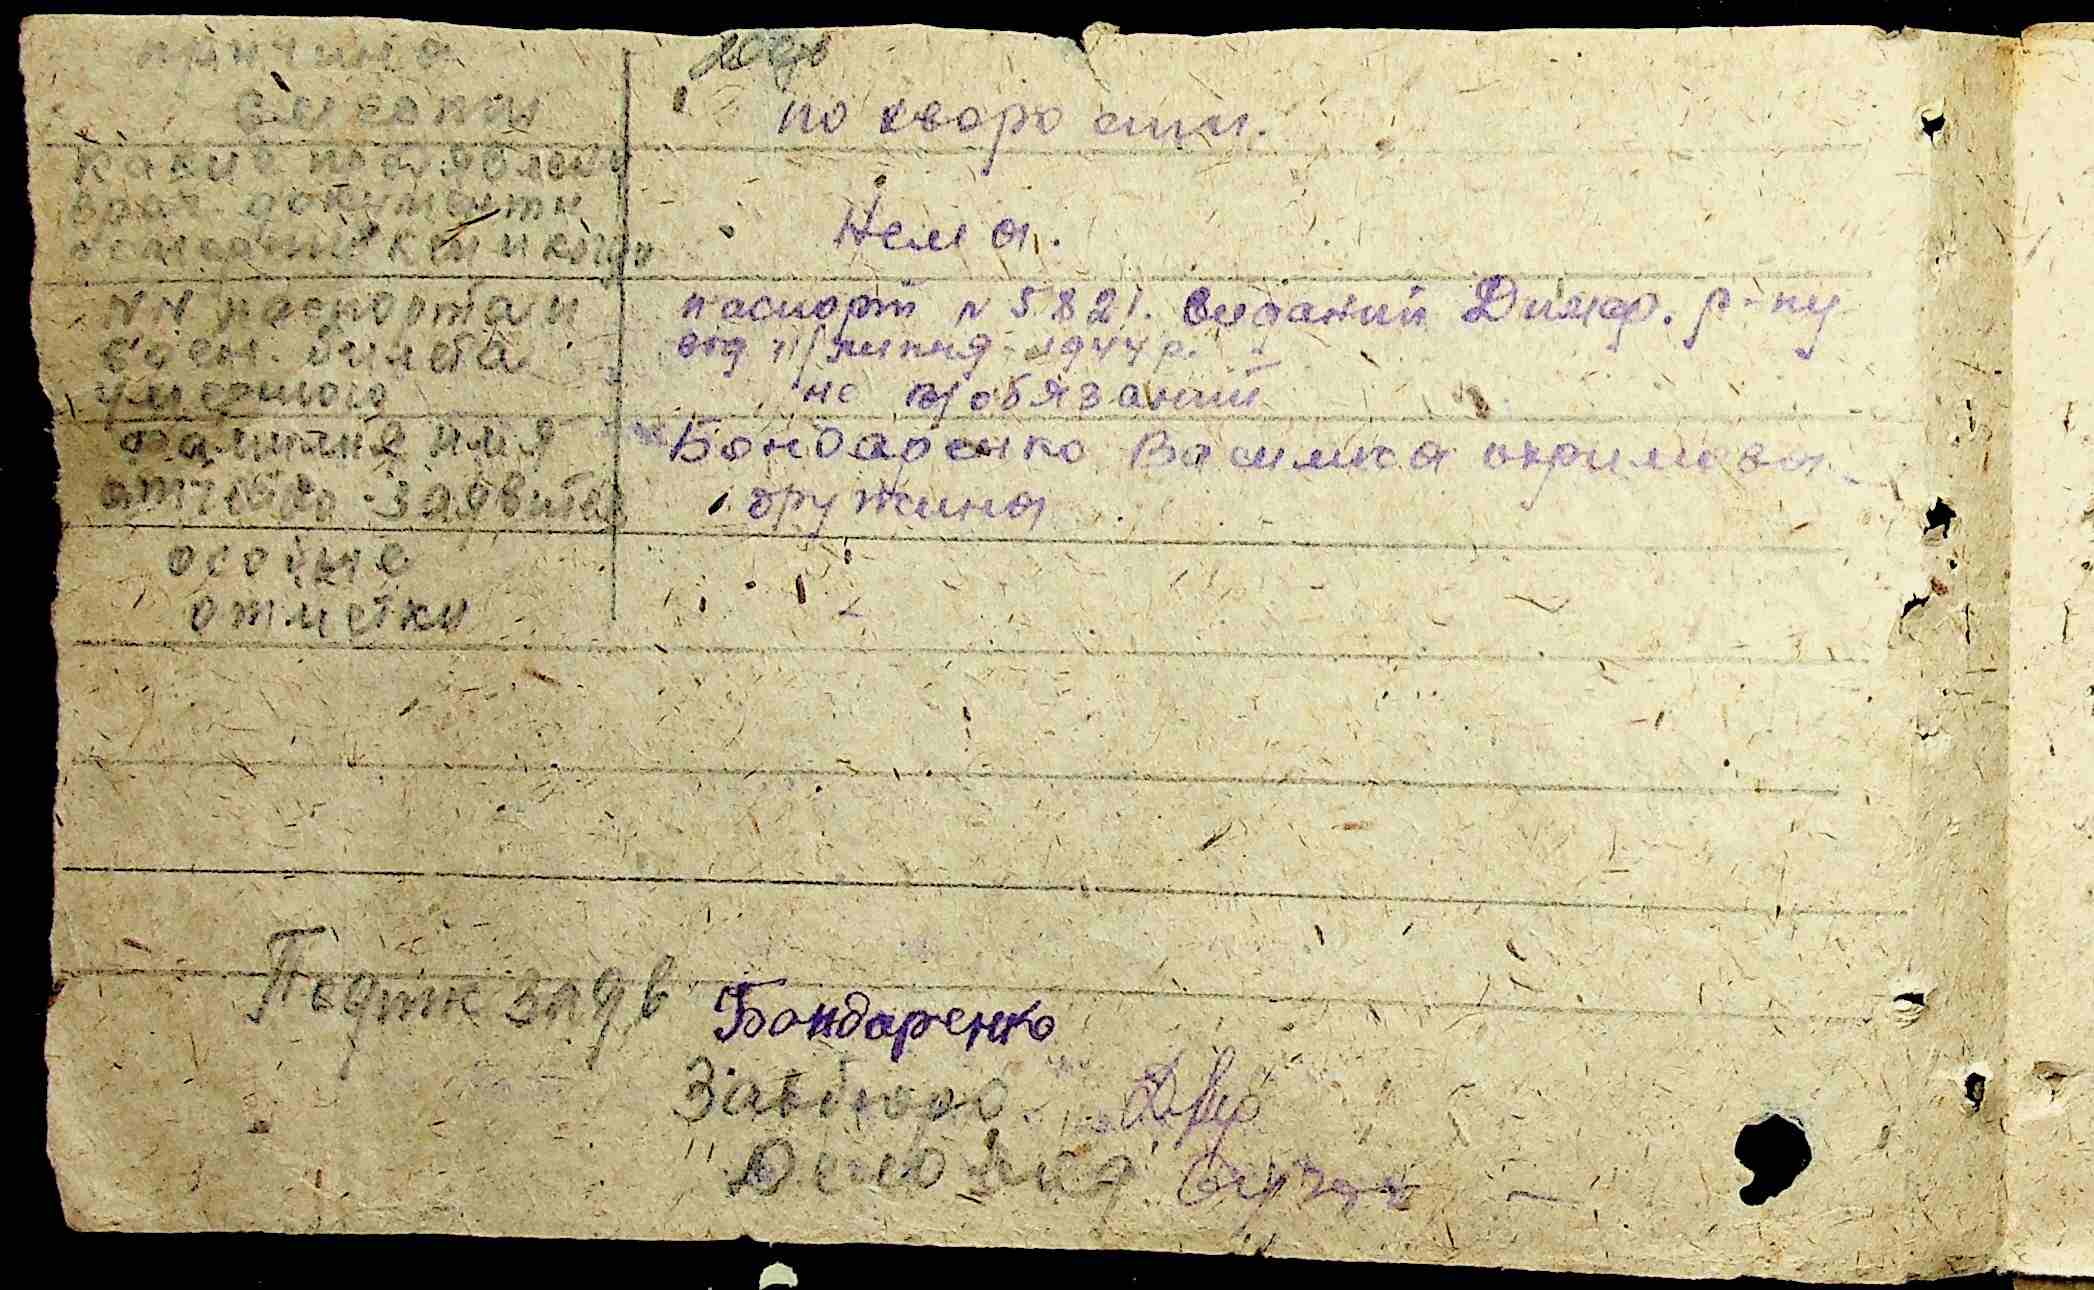 причина
смерти
по хворости.
какие предявлени
врач. документи
о смерти кем и когда
Нема.
NN паспорта и
воен. билета
умершого
паспорт N 5821. виданий Димер. р-ну
від 11/липня 1944 р.
не зобязаний
фамилия имя
отчество заявител
Бондаренко Василиса окримовна
дружина
особые
отметки
Подпис заяв
Бондаренко
Завбюро